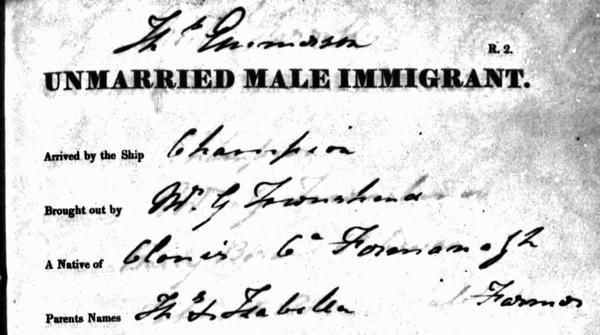 Ths Emmerson
R. 2.
UNMARRIED MALE IMMIGRANT.
Arrived by the Ship Champion
Brought out by Mr. G Townshend
A Native of Clones Co Formanagh
Parents Names Ths & Isabella Farmer